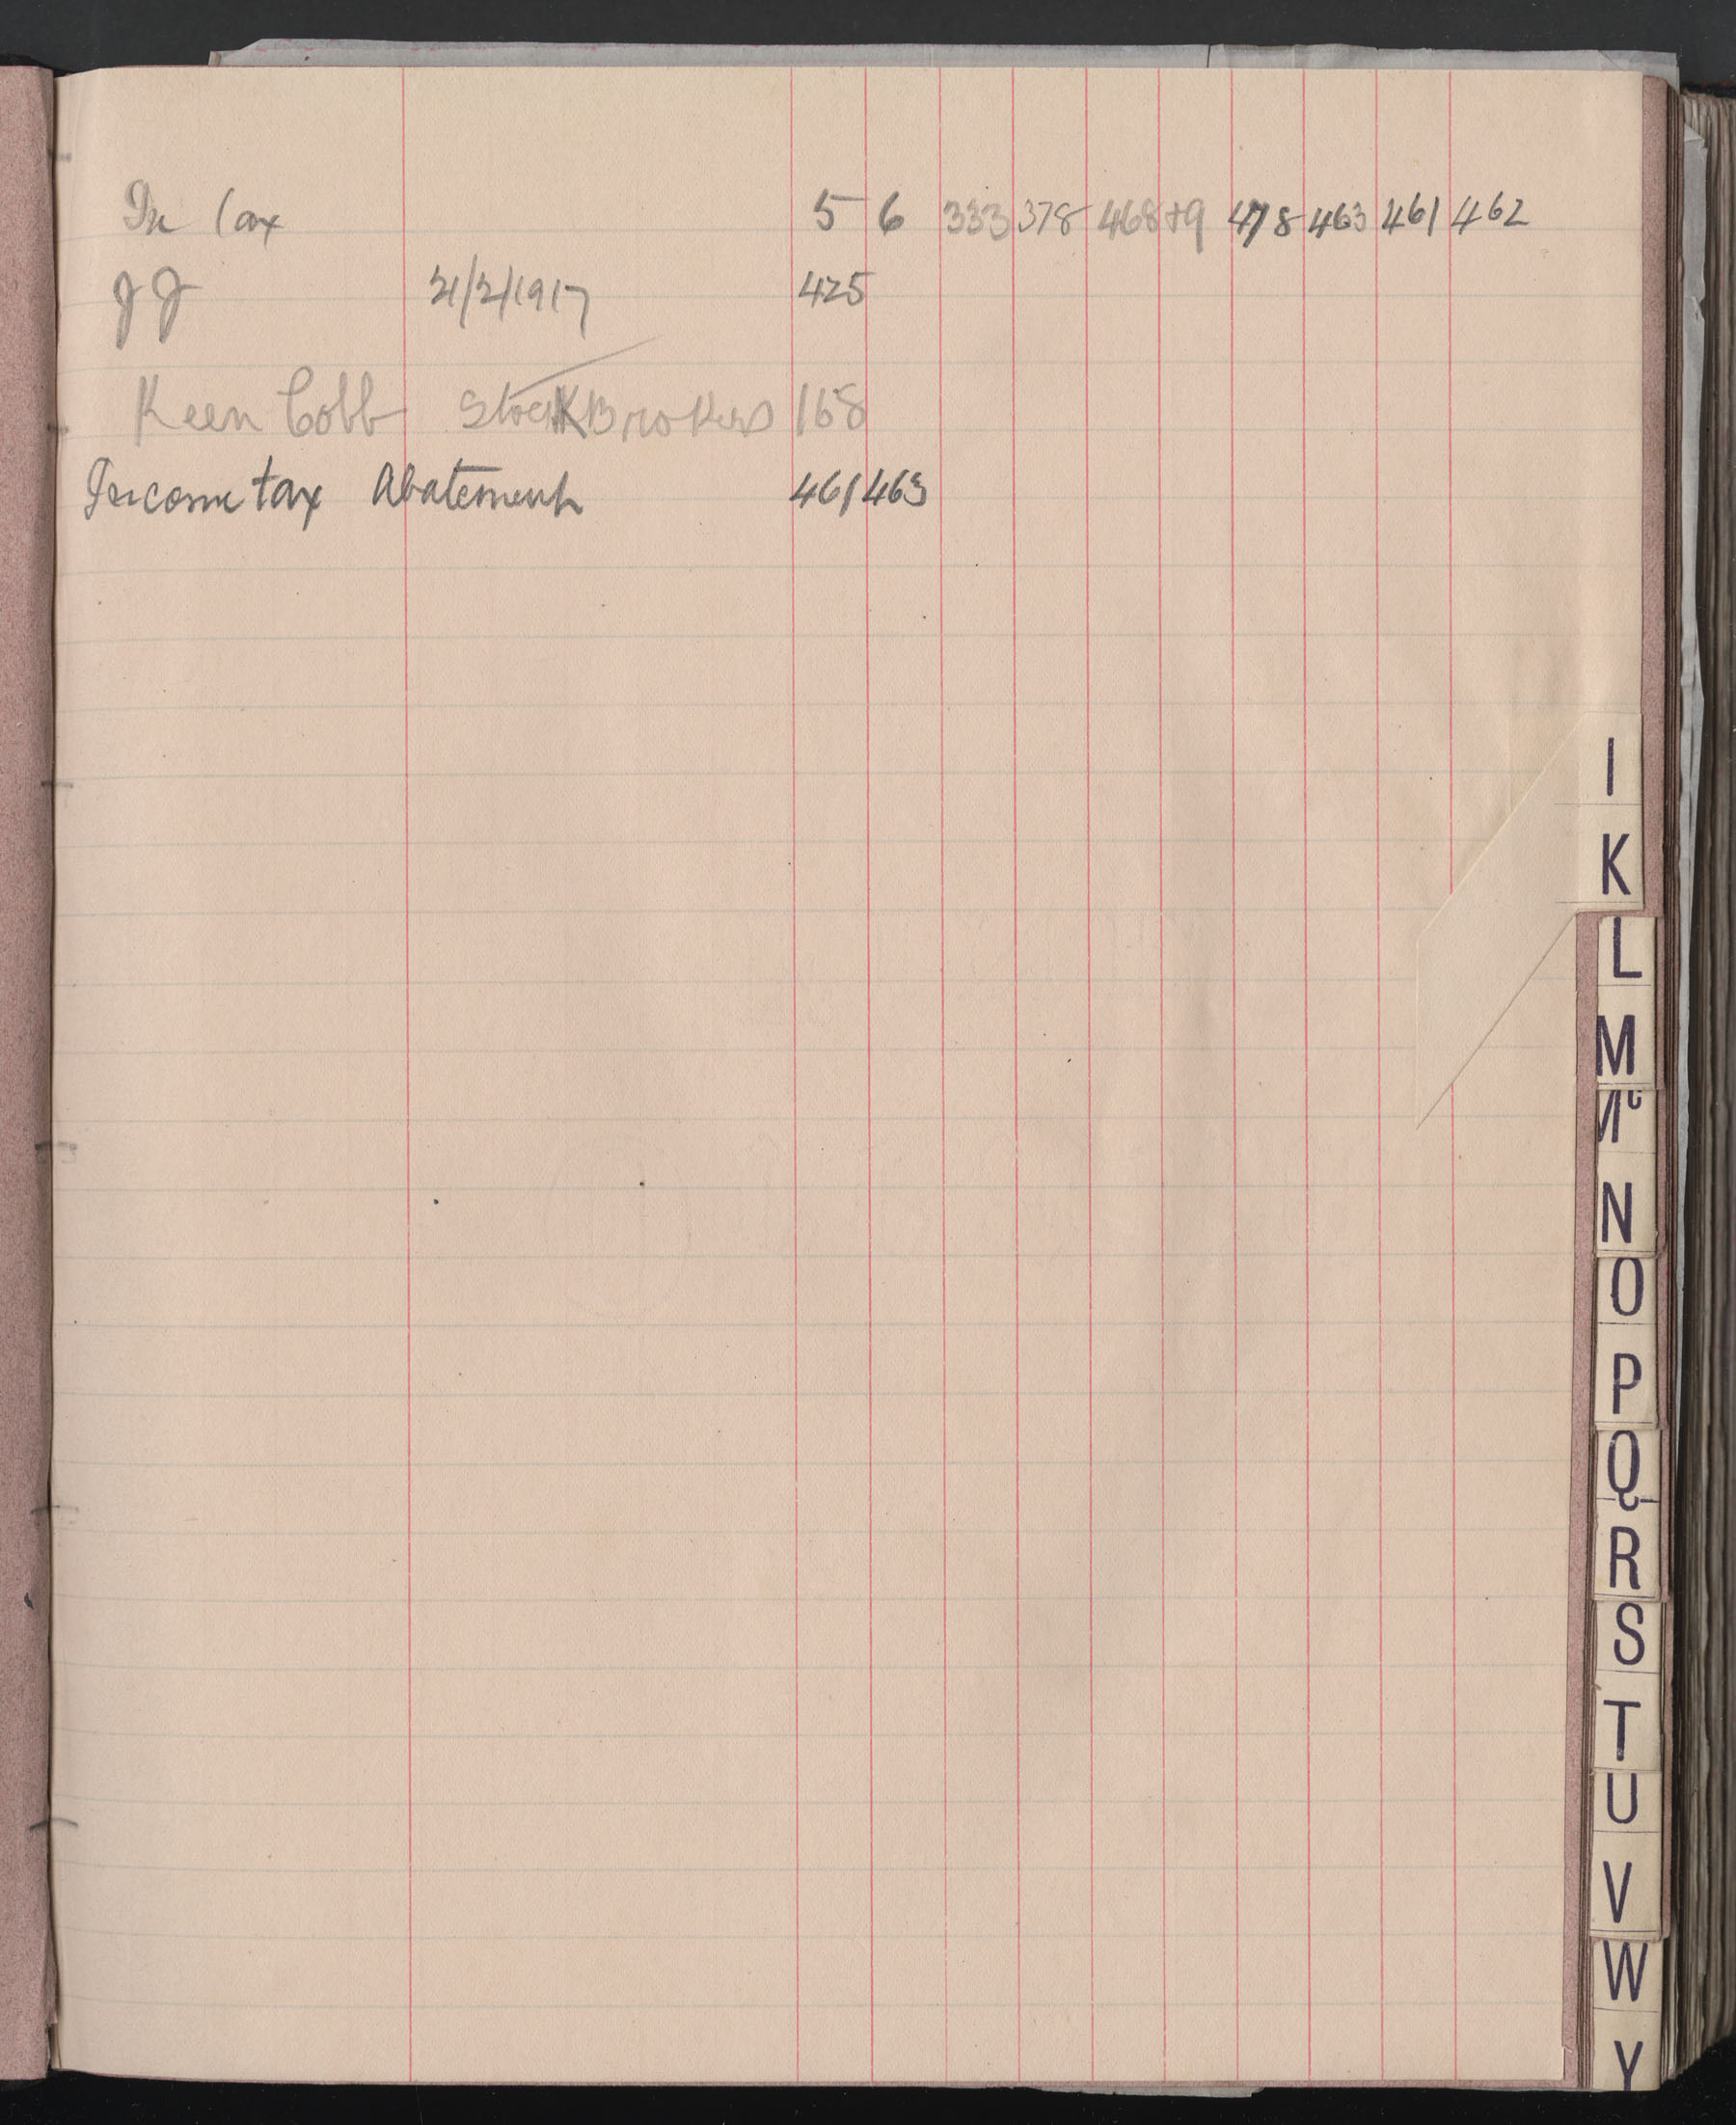 In Tax 5 6 333 378 468+9 478 463 461 462
JJ 21/2/1917 425
Keen Cobb StockBrokers 168
Income tax Abatement 461 463
I
K
L
M
Mc
N
O
P
Q
R
S
T
U
V
W
Y